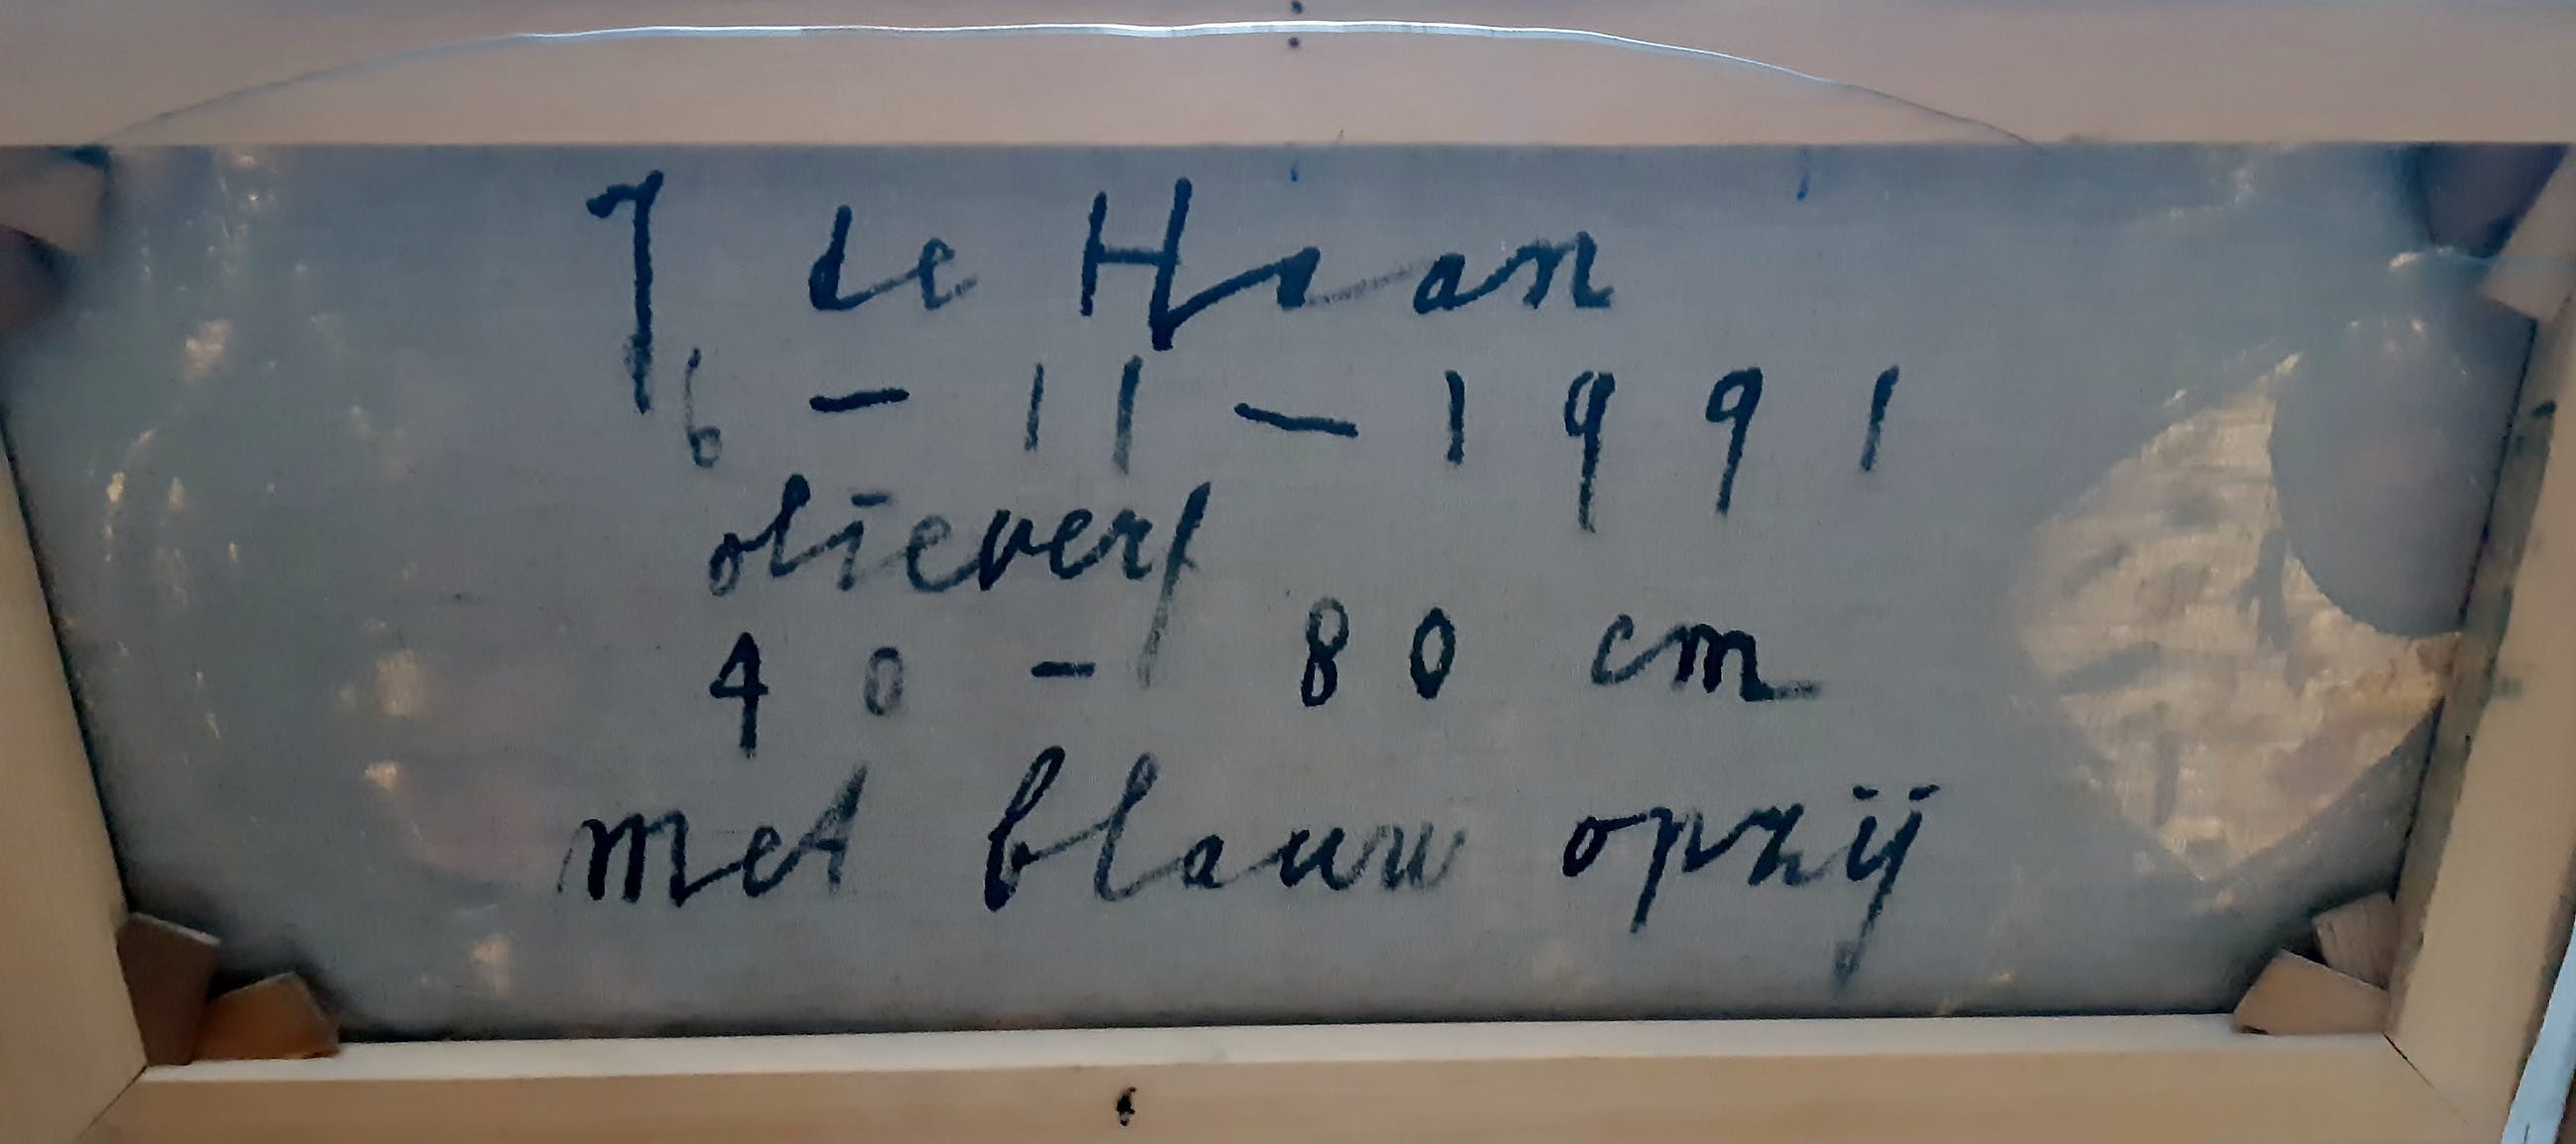 J de Haan
6 - 11 - 1991
olieverf
40 - 80 cm
met blauw opzij